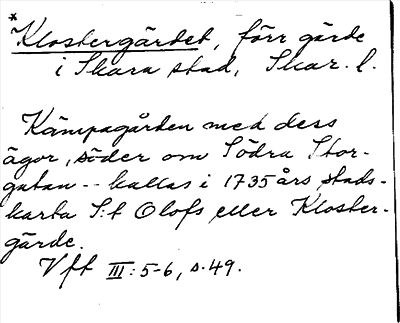 *Klostergärdet, förr gärde
i Skara stad, Skar. l.
Kämpagården med dess
ägor, söder om Södra Stor-
gatan -- kallas i 1735 års stads-
karta S:t Olofs eller Kloster-
gärde.
Vft III: 5-6, s. 49.